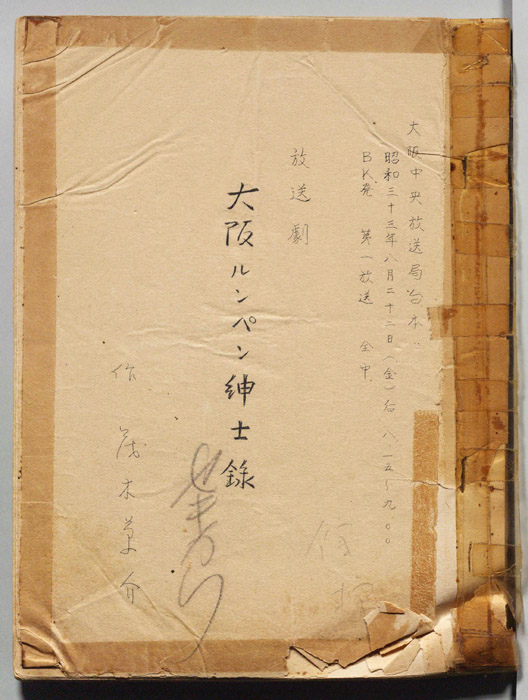 大阪中央放送局台本
昭和三十三年八月二十二日(金)后八.一五~九.〇〇
BK発 第一放送 全中
放送劇
大阪ルンペン紳士録
作 茂木草介